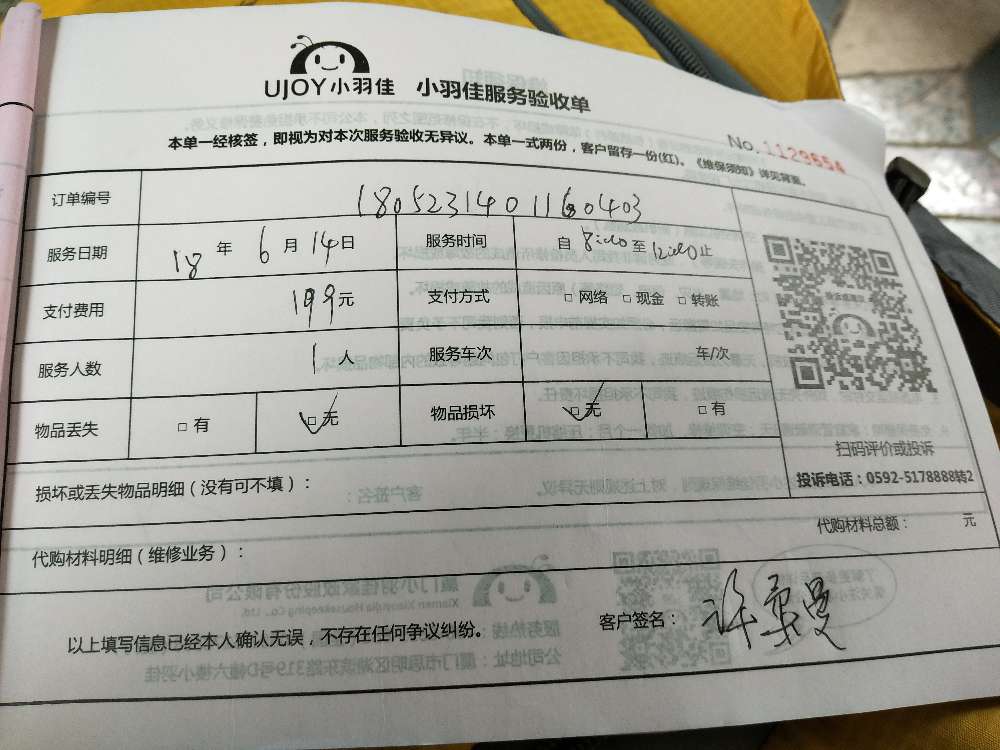 UJOY小羽佳 小羽佳服务验收单
No.1129554
本单一经核签，即视为对本次服务验收无异议。本单一式两份，客户留存一份(红)。《维保须知》详见背面。
订单编号 1805231401160403
服务日期 18年6月14日 服务时间 自8:00至12:00止
支付费用 199元 支付方式 □网络 □现金 □转账
服务人数 1人 服务车次 车/次
物品丢失 □有 ☑无 物品损坏 ☑无 □有
扫码评价或投诉
投诉电话：0592-5178888转2
损坏或丢失物品明细（没有可不填）：
代购材料明细（维修业务）： 代购材料总额： 元
以上填写信息已经本人确认无误，不存在任何争议纠纷。 客户签名：